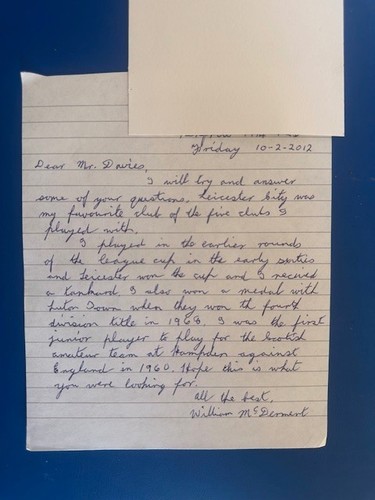 Friday 10-2-2012
Dear Mr. Davies,
I will try and answer
some of your questions. Leicester City was
my favourite club of the five clubs I
played with.
I played in the earlier rounds
of the league cup in the early sixties
and Leicester won the cup and I received
a tankard. I also won a medal with
Luton Town when they won the fourth
division title in 1968. I was the first
junior player to play for the Scotish
amateur team at Hampden against
England in 1960. Hope this is what
you were looking for.
All the best,
William McDermott